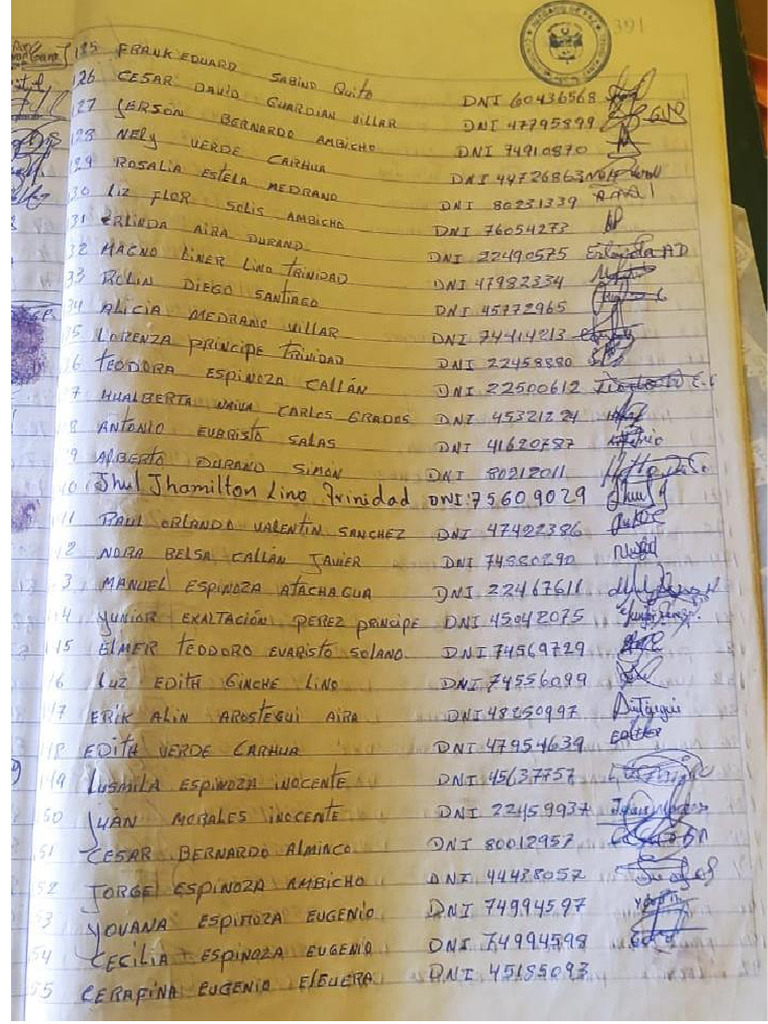 391
JUZGADO DE PAZ
125 FRANK EDUARD SABINO QUITO DNI 60436568
126 CESAR DAVID GUARDIAN VILLAR DNI 47795899
127 JERSON BERNARDO AMBICHO DNI 74910870
128 NELY VERDE CARHUA DNI 44726863
129 ROSALIA ESTELA MEDRANO DNI 80231339
30 LIZ FLOR SOLIS AMBICHO DNI 76054273
31 ERLINDA AIRA DURAND DNI 22490575
32 MAGNO LINER LINO TRINIDAD DNI 47982334
33 ROLIN DIEGO SANTIAGO DNI 45772965
34 ALICIA MEDRANO VILLAR DNI 74414213
35 LORENZA PRINCIPE TRINIDAD DNI 22458880
36 TEODORA ESPINOZA CALLÁN DNI 22500612
7 HUALBERTA NAIVA CARLOS GRADOS DNI 45321224
8 ANTONIO EVARISTO SALAS DNI 41620787
9 ALBERTO DURAND SIMON DNI 80212011
40 Jhul Jhamilton Lino Trinidad DNI:75609029
41 RAUL ORLANDO VALENTIN SANCHEZ DNI 47422386
2 NORA BELSA CALLÁN JAVIER DNI 74880290
3 MANUEL ESPINOZA ATACHAGUA DNI 22467611
4 YUNIOR EXALTACIÓN PEREZ PRINCIPE DNI 45042075
145 ELMER TEODORO EVARISTO SOLANO DNI 74569729
46 LUZ EDITH GINCHE LINO DNI 74556099
147 ERIK ALIN AROSTEGUI AIRA DNI 48250997
148 EDITH VERDE CARHUA DNI 47954639
149 LUSMILA ESPINOZA INOCENTE DNI 45637757
50 JUAN MORALES INOCENTE DNI 22459937
51 CESAR BERNARDO ALMINCO DNI 80012957
52 JORGE ESPINOZA AMBICHO DNI 44438052
53 YOVANA ESPINOZA EUGENIO DNI 74994597
54 CECILIA ESPINOZA EUGENIO DNI 74994598
55 CERAFINA EUGENIO ELGUERA DNI 45185093